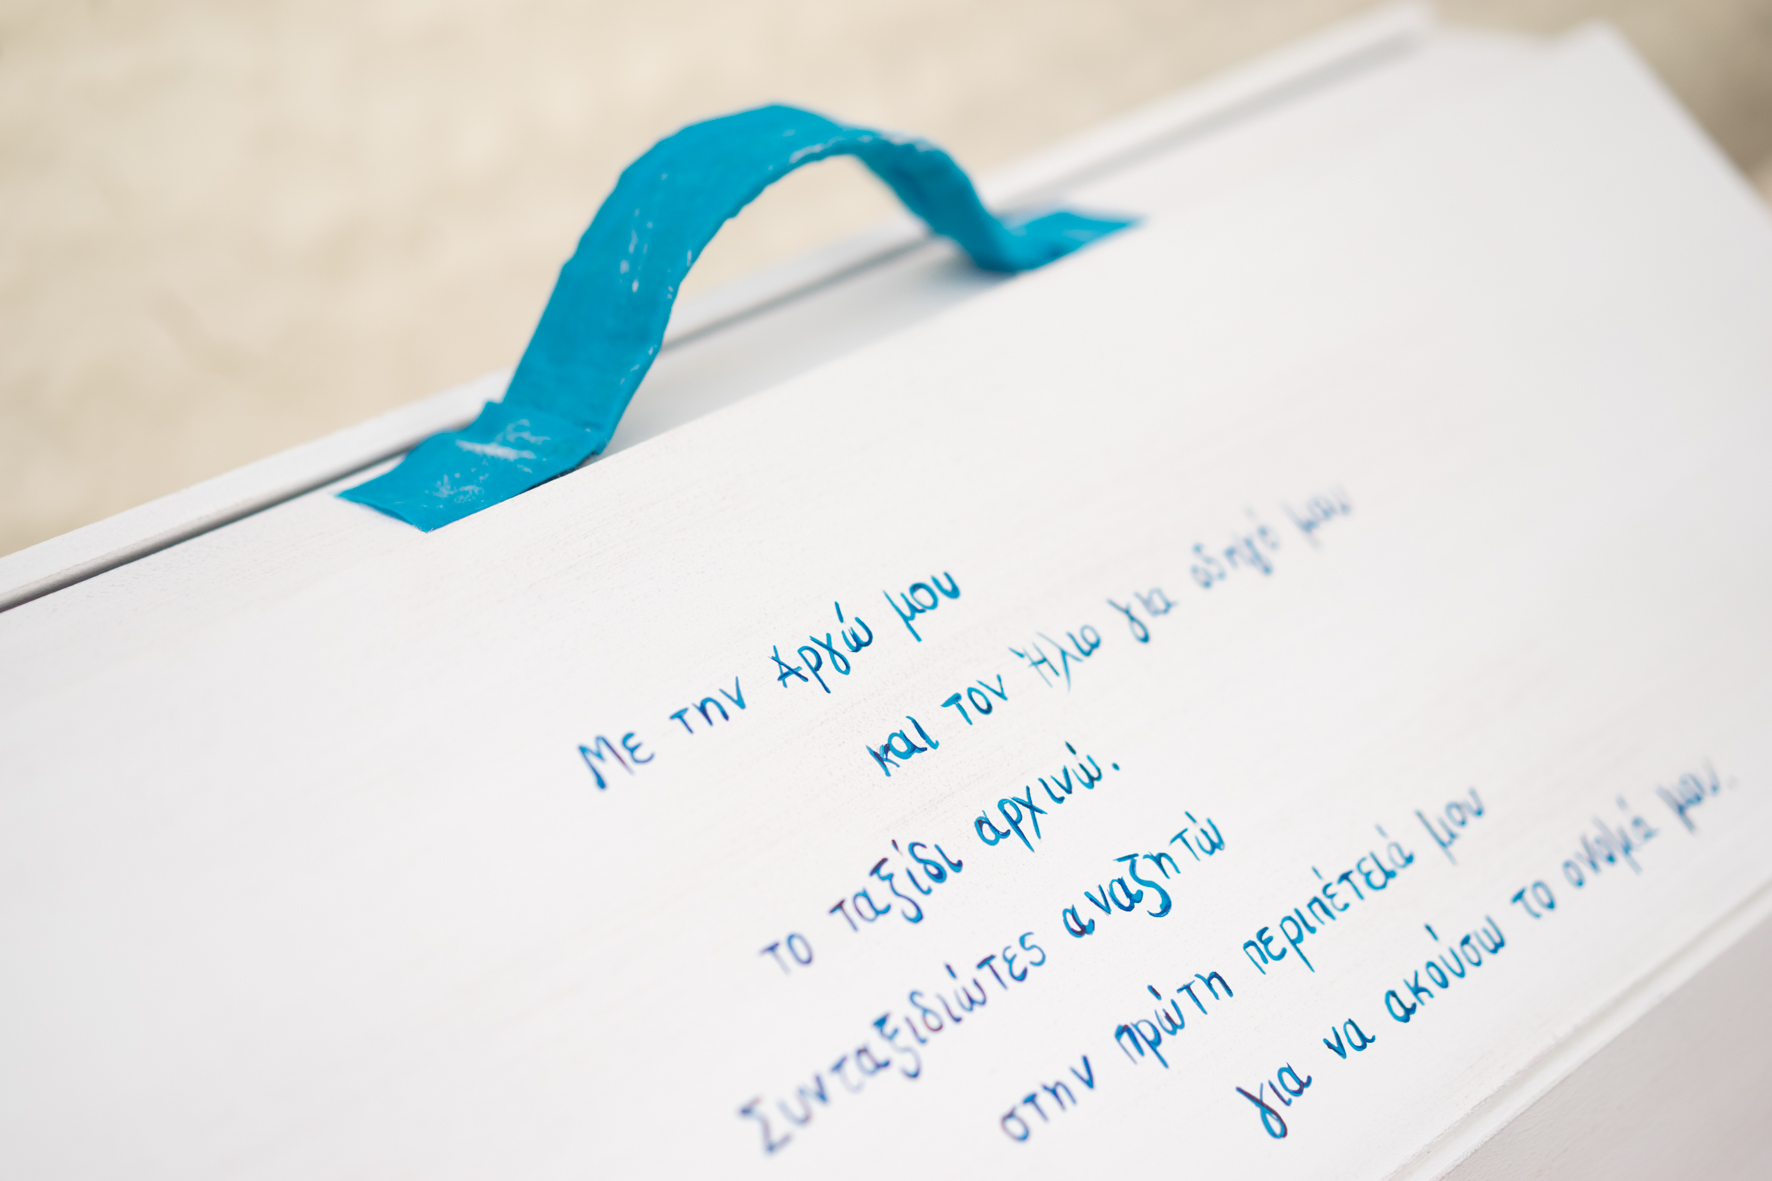 Με την Αργώ μου
και τον Ήλιο για οδηγό μου
το ταξίδι αρχινώ.
Συνταξιδιώτες αναζητώ
στην πρώτη περιπέτειά μου
για να ακούσω το ονομά μου.